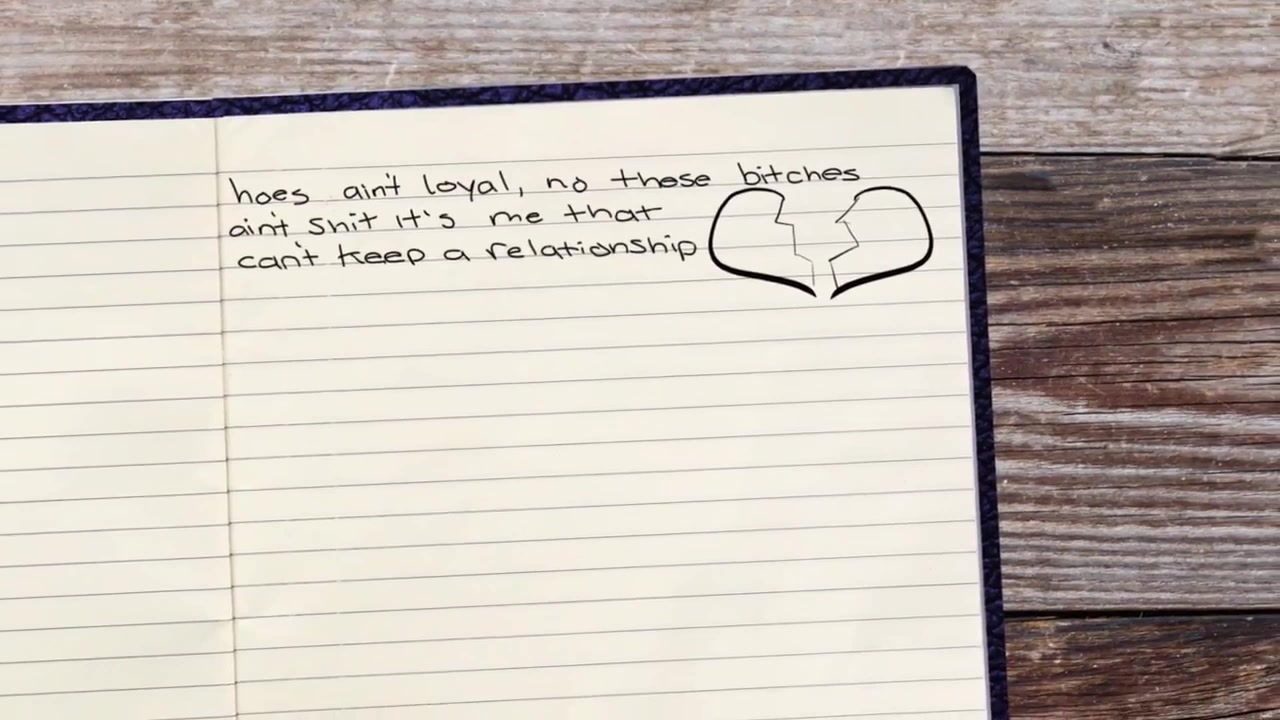 hoes ain't loyal, no these bitches
ain't shit it's me that
can't keep a relationship